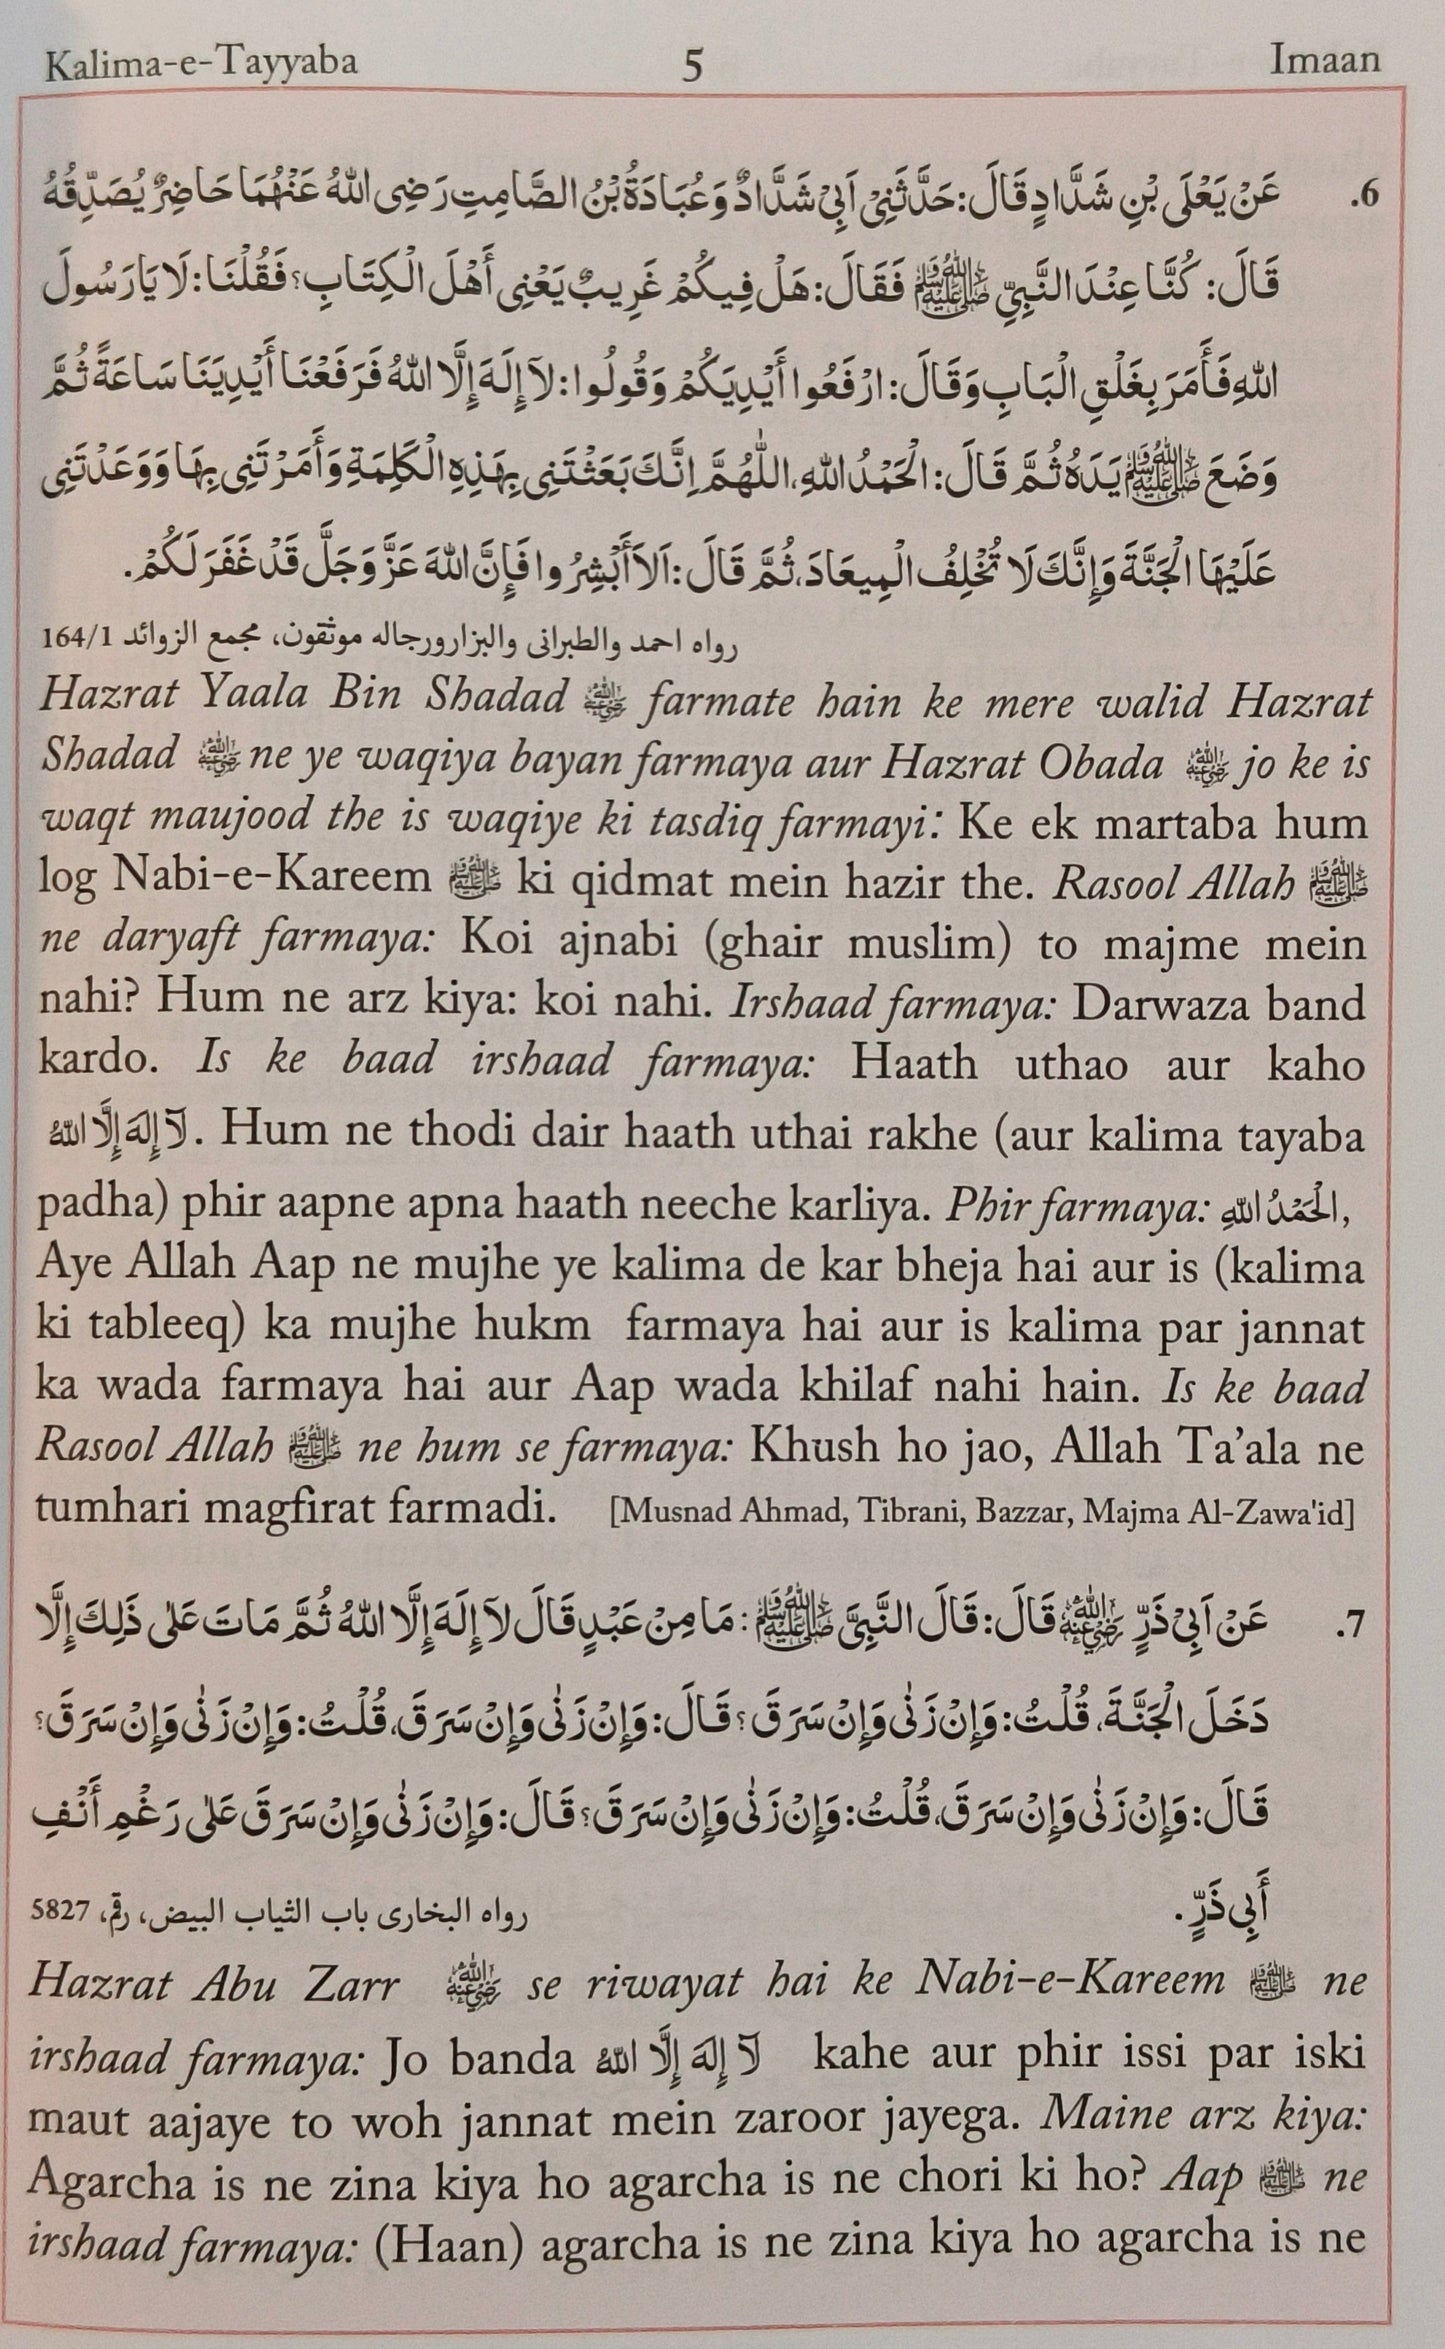 Kalima-e-Tayyaba 5 Imaan
6. عَنْ يَعْلَى بْنِ شَدَّادٍ قَالَ: حَدَّثَنِيْ اَبِيْ شَدَّادٌ وَعُبَادَةُ بْنُ الصَّامِتِ رَضِى اللهُ عَنْهُمَا حَاضِرٌ يُصَدِّقُهُ
قَالَ: كُنَّا عِنْدَ النَّبِيِّ ﷺ فَقَالَ: هَلْ فِيكُمْ غَرِيبٌ يَعْنِى أَهْلَ الْكِتَابِ؟ فَقُلْنَا: لَا يَا رَسُولَ
اللهِ فَأَمَرَ بِغَلْقِ الْبَابِ وَقَالَ: ارْفَعُوا أَيْدِيَكُمْ وَقُولُوا: لَآ إِلَهَ إِلَّا اللهُ فَرَفَعْنَا أَيْدِيَنَا سَاعَةً ثُمَّ
وَضَعَ ﷺ يَدَهُ ثُمَّ قَالَ: الْحَمْدُ اللهِ، اللّٰهُمَّ اِنَّكَ بَعَثْتَنِى بِهَذِهِ الْكَلِمَةِ وَأَمَرْتَنِى بِهَا وَوَعَدْتَنِى
عَلَيْهَا الْجَنَّةَ وَإِنَّكَ لَا تُخْلِفُ الْمِيعَادَ، ثُمَّ قَالَ: اَلَا أَبْشِرُوا فَإِنَّ اللهَ عَزَّ وَجَلَّ قَدْ غَفَرَ لَكُمْ.
رواه احمد والطبرانى والبزار ورجاله موثقون، مجمع الزوائد 164/1
Hazrat Yaala Bin Shadad ﷺ farmate hain ke mere walid Hazrat
Shadad رضي الله عنه ne ye waqiya bayan farmaya aur Hazrat Obada رضي الله عنه jo ke is
waqt maujood the is waqiye ki tasdiq farmayi: Ke ek martaba hum
log Nabi-e-Kareem ﷺ ki qidmat mein hazir the. Rasool Allah ﷺ
ne daryaft farmaya: Koi ajnabi (ghair muslim) to majme mein
nahi? Hum ne arz kiya: koi nahi. Irshaad farmaya: Darwaza band
kardo. Is ke baad irshaad farmaya: Haath uthao aur kaho
لَآ إِلَهَ إِلَّا اللهُ. Hum ne thodi dair haath uthai rakhe (aur kalima tayaba
padha) phir aapne apna haath neeche karliya. Phir farmaya: الْحَمْدُ اللهِ,
Aye Allah Aap ne mujhe ye kalima de kar bheja hai aur is (kalima
ki tableeq) ka mujhe hukm farmaya hai aur is kalima par jannat
ka wada farmaya hai aur Aap wada khilaf nahi hain. Is ke baad
Rasool Allah ﷺ ne hum se farmaya: Khush ho jao, Allah Ta’ala ne
tumhari magfirat farmadi. [Musnad Ahmad, Tibrani, Bazzar, Majma Al-Zawa'id]
7. عَنْ اَبِيْ ذَرٍّ رضي الله عنه قَالَ: قَالَ النَّبِىَّ ﷺ: مَا مِنْ عَبْدٍ قَالَ لَآ إِلَهَ إِلَّا اللهُ ثُمَّ مَاتَ عَلٰى ذَلِكَ إِلَّا
دَخَلَ الْجَنَّةَ، قُلْتُ: وَإِنْ زَنٰى وَإِنْ سَرَقَ؟ قَالَ: وَإِنْ زَنٰى وَإِنْ سَرَقَ، قُلْتُ: وَإِنْ زَنٰى وَإِنْ سَرَقَ؟
قَالَ: وَإِنْ زَنٰى وَإِنْ سَرَقَ، قُلْتُ: وَإِنْ زَنٰى وَإِنْ سَرَقَ؟ قَالَ: وَإِنْ زَنٰى وَإِنْ سَرَقَ عَلٰى رَغْمِ أَنْفِ
أَبِى ذَرٍّ. رواه البخارى باب الثياب البيض، رقم، 5827
Hazrat Abu Zarr رضي الله عنه se riwayat hai ke Nabi-e-Kareem ﷺ ne
irshaad farmaya: Jo banda لَآ إِلَهَ إِلَّا اللهُ kahe aur phir issi par iski
maut aajaye to woh jannat mein zaroor jayega. Maine arz kiya:
Agarcha is ne zina kiya ho agarcha is ne chori ki ho? Aap ﷺ ne
irshaad farmaya: (Haan) agarcha is ne zina kiya ho agarcha is ne